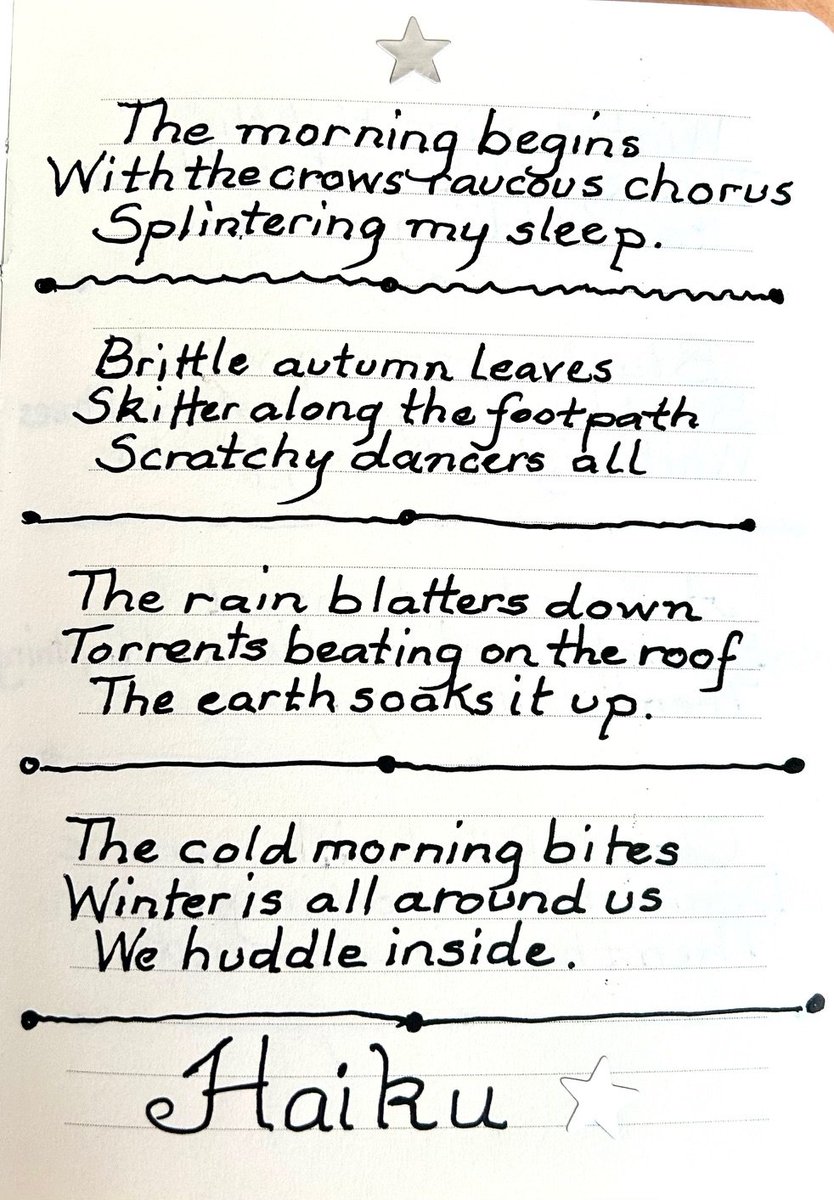 The morning begins
With the crows raucous chorus
Splintering my sleep.
Brittle autumn leaves
Skitter along the footpath
Scratchy dancers all
The rain blatters down
Torrents beating on the roof
The earth soaks it up.
The cold morning bites
Winter is all around us
We huddle inside.
Haiku